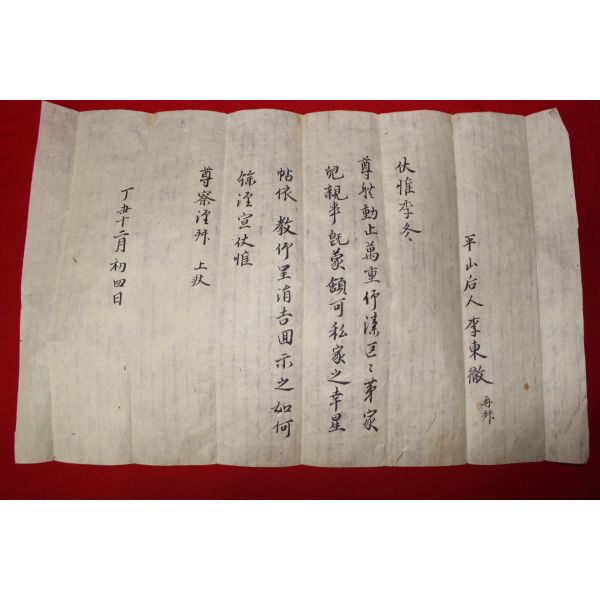 平山后人李東徹 再拜
伏惟季冬
尊體動止萬重仰溸區〻第家
兒親事旣蒙頷可私家之幸星
帖依 敎仰呈涓吉回示之如何
餘謹宣伏惟
尊察謹拜 上狀
丁丑十二月初四日